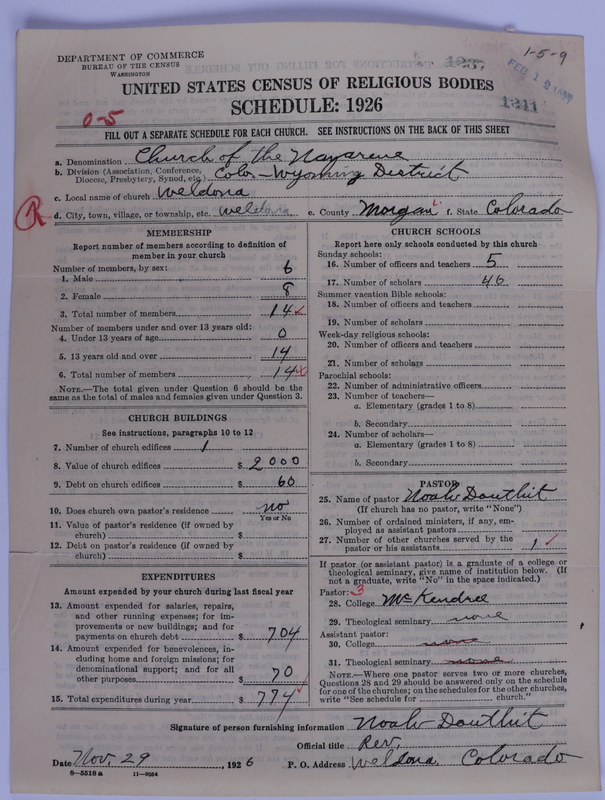 DEPARTMENT OF COMMERCE
BUREAU OF THE CENSUS
WASHINGTON
1-5-9
FEB 1 2 1927
1341
UNITED STATES CENSUS OF RELIGIOUS BODIES
SCHEDULE: 1926
0-5
FILL OUT A SEPARATE SCHEDULE FOR EACH CHURCH. SEE INSTRUCTIONS ON THE BACK OF THIS SHEET
a. Denomination Church of the Nazarene
b. Division (Association, Conference, Diocese, Presbytery, Synod, etc.) Colo-Wyoming District
c. Local name of church Weldona
R
d. City, town, village, or township, etc. Weldona e. County Morgan f. State Colorado
MEMBERSHIP
Report number of members according to definition of
member in your church
Number of members, by sex:
1. Male 6
2. Female 8
3. Total number of members 14
Number of members under and over 13 years old:
4. Under 13 years of age 0
5. 13 years old and over 14
6. Total number of members 14
NOTE.—The total given under Question 6 should be
same as the total of males and females given under Question 3.
CHURCH BUILDINGS
See instructions, paragraphs 10 to 12
7. Number of church edifices 1
8. Value of church edifices $ 2000
9. Debt on church edifices $ 60
10. Does church own pastor's residence no
Yes or No
11. Value of pastor's residence (if owned by
church) $
12. Debt on pastor's residence (if owned by
church) $
EXPENDITURES
Amount expended by your church during last fiscal year
13. Amount expended for salaries, repairs,
and other running expenses; for im-
provements or new buildings; and for
payments on church debt $ 704
14. Amount expended for benevolences, in-
cluding home and foreign missions; for
denominational support; and for all
other purposes $ 70
15. Total expenditures during year $ 774
CHURCH SCHOOLS
Report here only schools conducted by this church
Sunday schools:
16. Number of officers and teachers 5
17. Number of scholars 46
Summer vacation Bible schools:
18. Number of officers and teachers
19. Number of scholars
Week-day religious schools:
20. Number of officers and teachers
21. Number of scholars
Parochial schools:
22. Number of administrative officers
23. Number of teachers—
a. Elementary (grades 1 to 8)
b. Secondary
24. Number of scholars—
a. Elementary (grades 1 to 8)
b. Secondary
PASTOR
25. Name of pastor Noah Douthit
(If church has no pastor, write "None")
26. Number of ordained ministers, if any, em-
ployed as assistant pastors
27. Number of other churches served by the
pastor or his assistants 1
If pastor (or assistant pastor) is a graduate of a college or
theological seminary, give name of institution below. (If
not a graduate, write "No" in the space indicated.)
Pastor: 3
28. College McKendree
29. Theological seminary none
Assistant pastor:
30. College none
31. Theological seminary none
NOTE.—Where one pastor serves two or more churches,
Questions 28 and 29 should be answered only on the schedule
for one of the churches; on the schedules for the other churches,
write "See schedule for church."
Signature of person furnishing information Noah Douthit
Official title Rev.
Date Nov. 29, 1926 P. O. Address Weldona, Colorado
8-5518a 11-9554